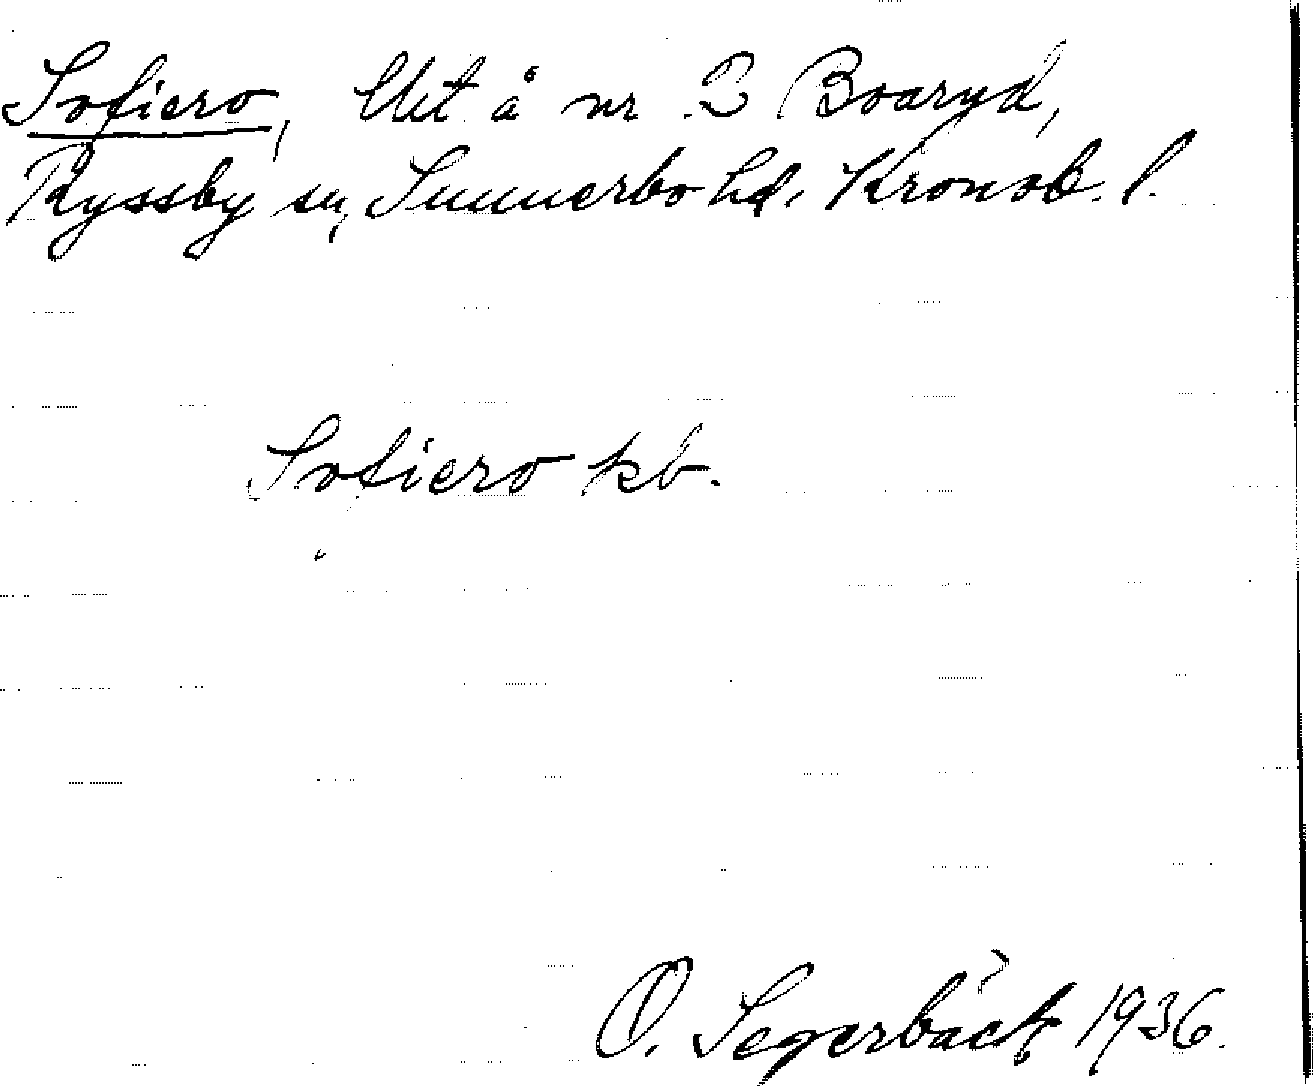 Sofiero, Utt å nr 2 Boaryd,
Ryssby sn, Sunnerbo hd. Kronob. l.
Sofiero kb.
O. Segerbäck 1936.